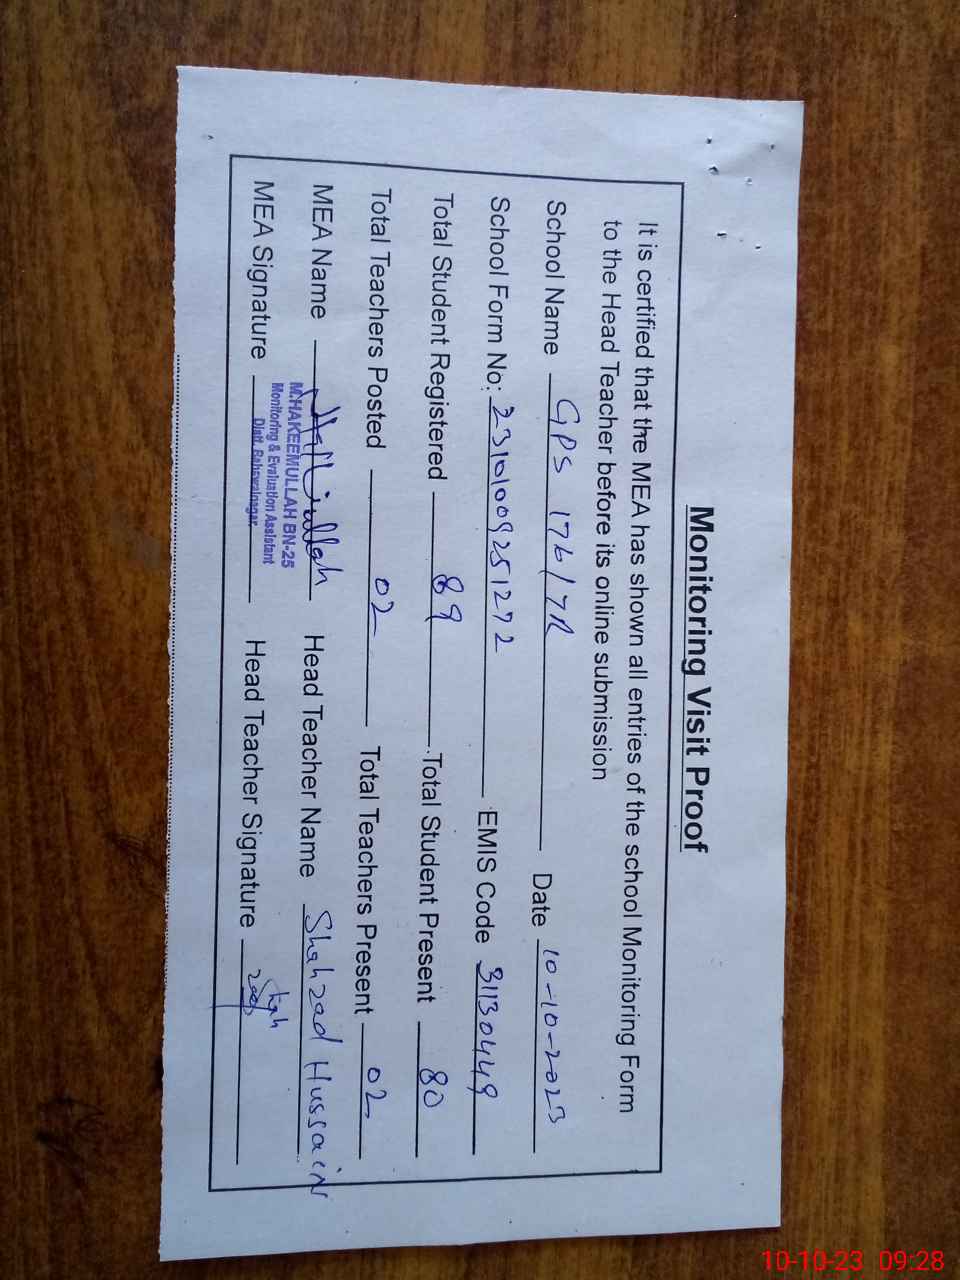 Monitoring Visit Proof
It is certified that the MEA has shown all entries of the school Monitoring Form
to the Head Teacher before its online submission
School Name GPS 176/7R Date 10-10-2023
School Form No: 23101009251272 EMIS Code 31130449
Total Student Registered 89 Total Student Present 80
Total Teachers Posted 02 Total Teachers Present 02
MEA Name Head Teacher Name Shahzad Hussain
M.HAKEEMULLAH BN-25
Monitoring & Evaluation Assistant
Distt. Bahawalnagar
MEA Signature Head Teacher Signature
10-10-23 09:28